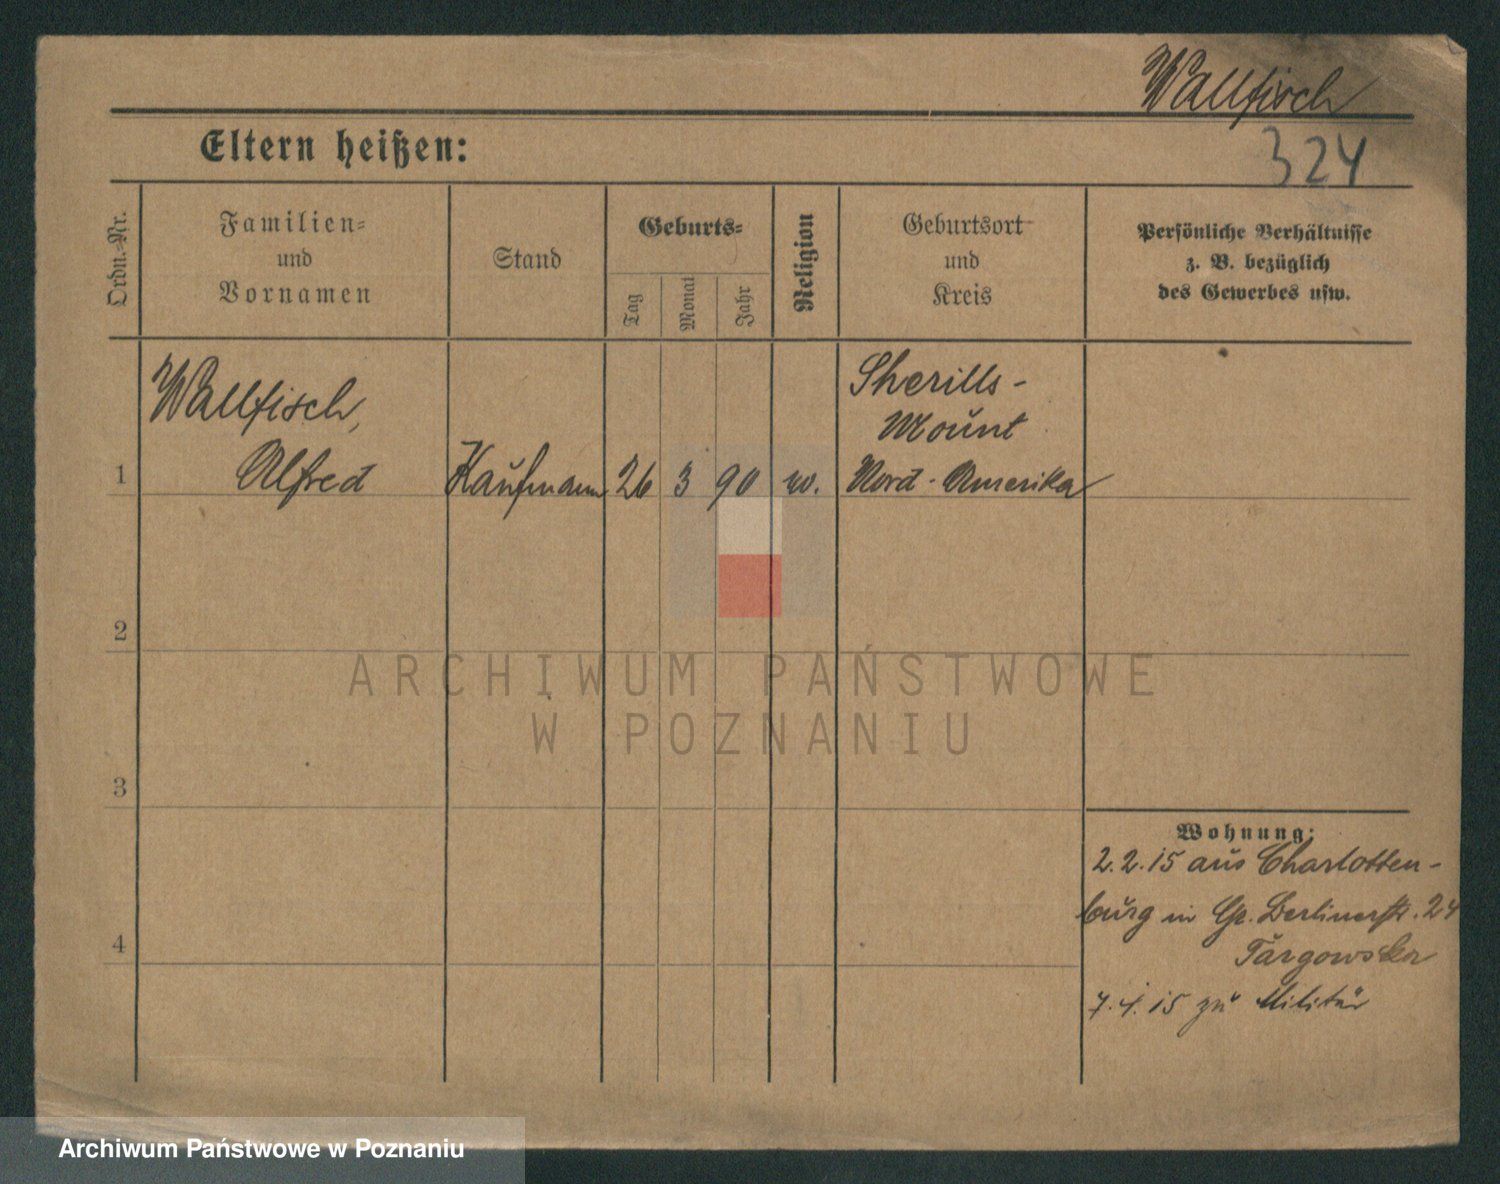 Wallfisch
324
Eltern heißen:
Ordn.-Nr.
Familien-
und
Vornamen
Stand
Geburts-
Tag
Monat
Jahr
Religion
Geburtsort
und
Kreis
Persönliche Verhältnisse
z. B. bezüglich
des Gewerbes usw.
1
Wallfisch,
Alfred
Kaufmann
26
3
90
w.
Sherills-
Mount
Nord-Amerika
2
3
4
Wohnung:
2.2.15 aus Charlotten-
burg in Gr. Berlinerstr. 24
Targowska
7.4.15 zu Militär
ARCHIWUM PAŃSTWOWE
W POZNANIU
Archiwum Państwowe w Poznaniu